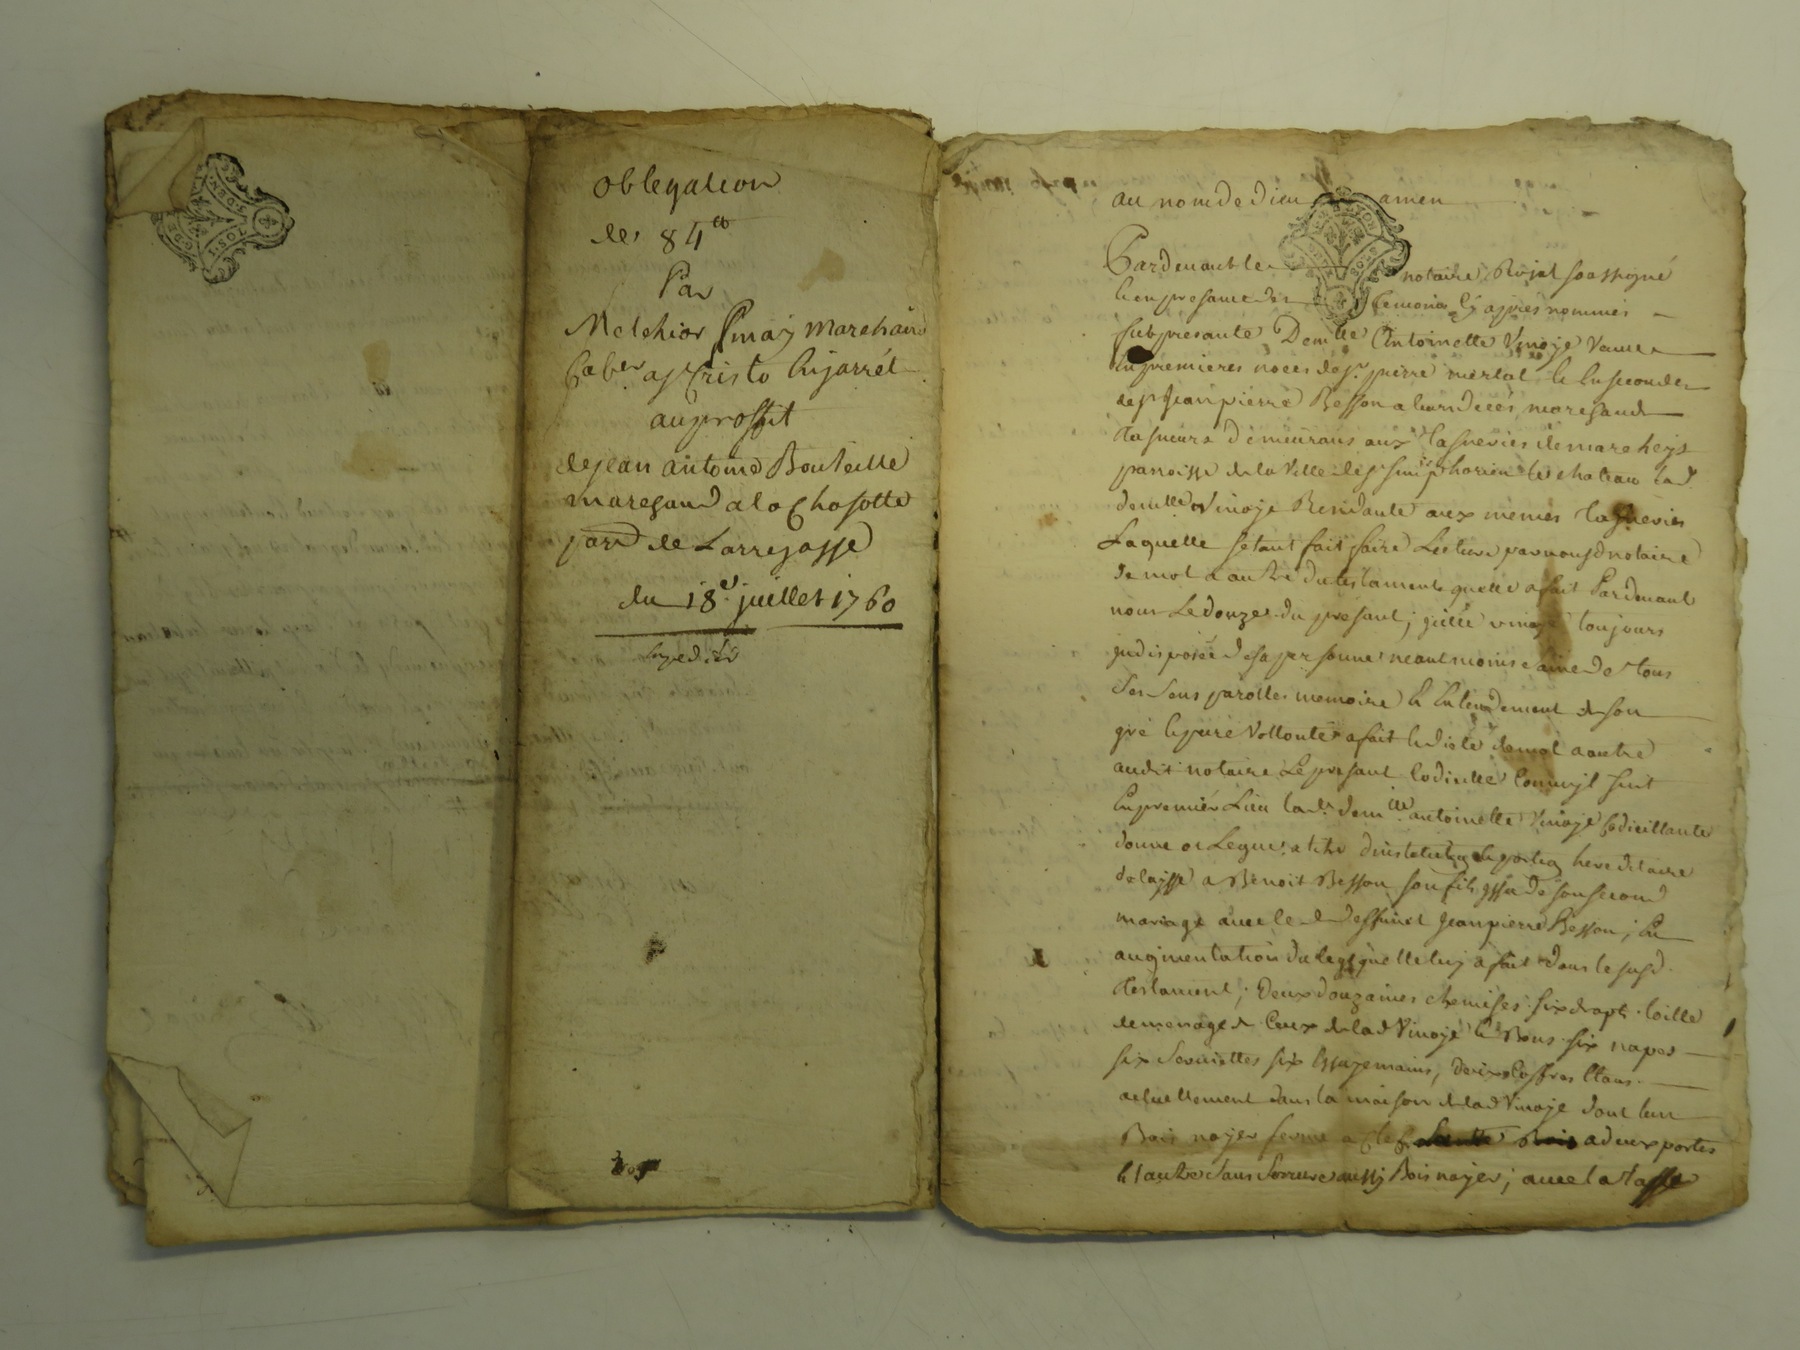 obligation
de 84ᵗᵗ
Par
Melchior marchand
Caba
au proffit
de jean antoine Bouteille
marchand a la Chasotte
parr de Larrejasse
du 18ᵉ juillet 1760
Expedié
au nom de dieu amen
Pardevant le notaire Royal soussigné
et en presance des temoins cy apres nommés
fut présante Demlle Antoinette Vinoje veuve
en premieres noces de sr pierre mertal et en secondes
de sr Jean pierre Besson a leurs decés marchands
demeurans aux de mareheys
parroisse de la Ville de st simphorien le chateau lad
demlle Vinoje Residante aux mémes
Laquelle setant fait faire Lecture par nousd notaire
de mot a autre du testament quelle a fait Pardevant
nous Le douze du presant, jcelle vinoje toujours
jndisposée de sa personne neantmoins saine de tous
ses sens parolles memoire et Entendement de son
gré et pure Vollonté a fait et dicté de mot a autre
audit notaire Le presant Codicille Comm jl suit
En premiér Lieu lad demlle antoinette Vinoje Codicillante
donne et Legue a titre dinstitution et portion hereditaire
delaisse a Benoit Besson son fils issu de son second
mariage avec le deffunct Jean pierre Besson, En
augmentation du legs quelle luy a fait dans le susd
testament, deux douzaines chemises six draps toille
de menage de Ceux de lad Vinoje et Bons six napes
six serviettes six Essuyemains, deux Coffres Etans
actuellement dans la maison de lad Vinoje dont lun
Bois noyer fermé a clef a deux portes
et lautre sans serrure aussy Bois noyer; avec la tasse